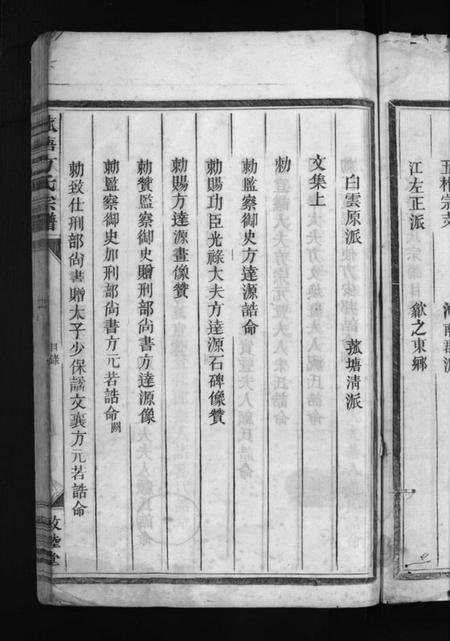 江左正派 歙之東鄉
白雲原派 菰塘清派
文集上
勅
勅監察御史方達源誥命
勅賜功臣光祿大夫方達源石碑像贊
勅賜方達源畫像贊
勅贊監察御史贈刑部尚書方達源像
勅監察御史加刑部尚書方元若誥命闕
勅致仕刑部尚書贈太子少保謚文襄方元若誥命
方氏宗譜
目錄
敦睦堂